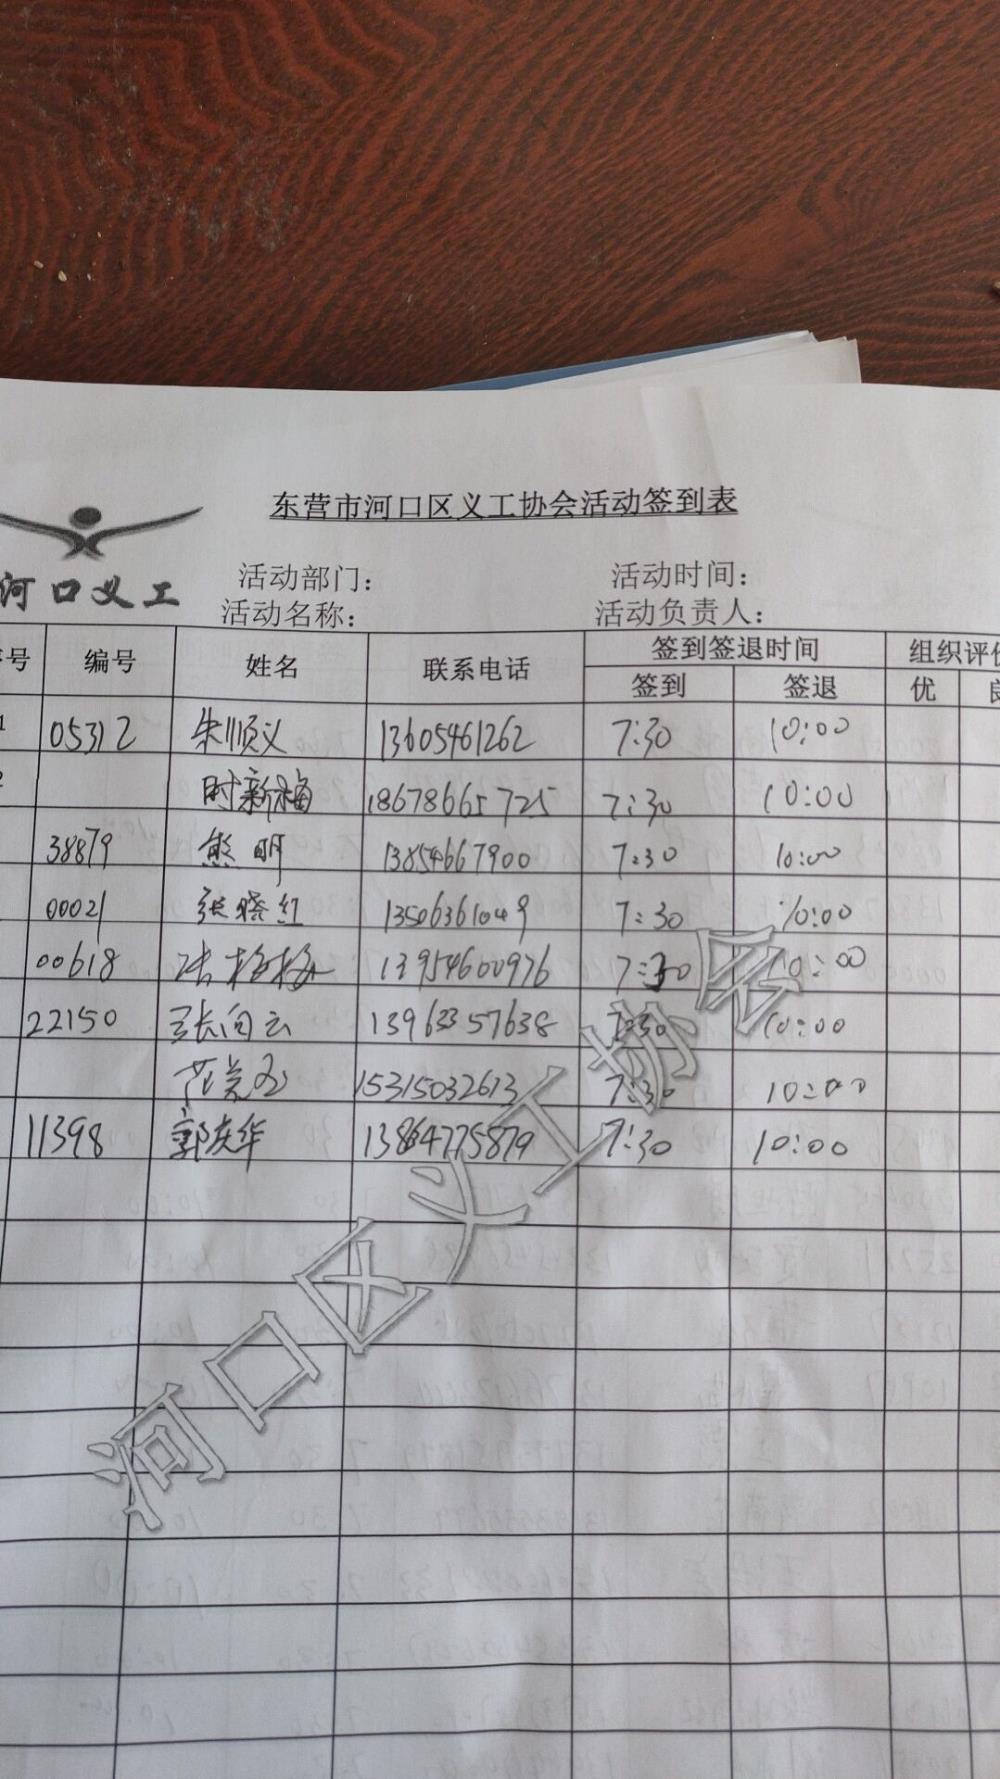 东营市河口区义工协会活动签到表
河口义工
活动部门： 活动时间：
活动名称： 活动负责人：
序号 编号 姓名 联系电话 签到签退时间 组织评价
签到 签退 优 良
1 05312 朱顺义 13605461262 7:30 10:00
2 时新梅 18678665725 7:30 10:00
38879 熊明 13854667900 7:30 10:00
00021 张晓红 13506361049 7:30 10:00
00618 梅梅 13954600976 7:30 10:00
22150 张向云 13963357638 7:30 10:00
范美玉 15315032613 7:30 10:00
11398 郭庆华 13864775879 7:30 10:00
河口区义工协会